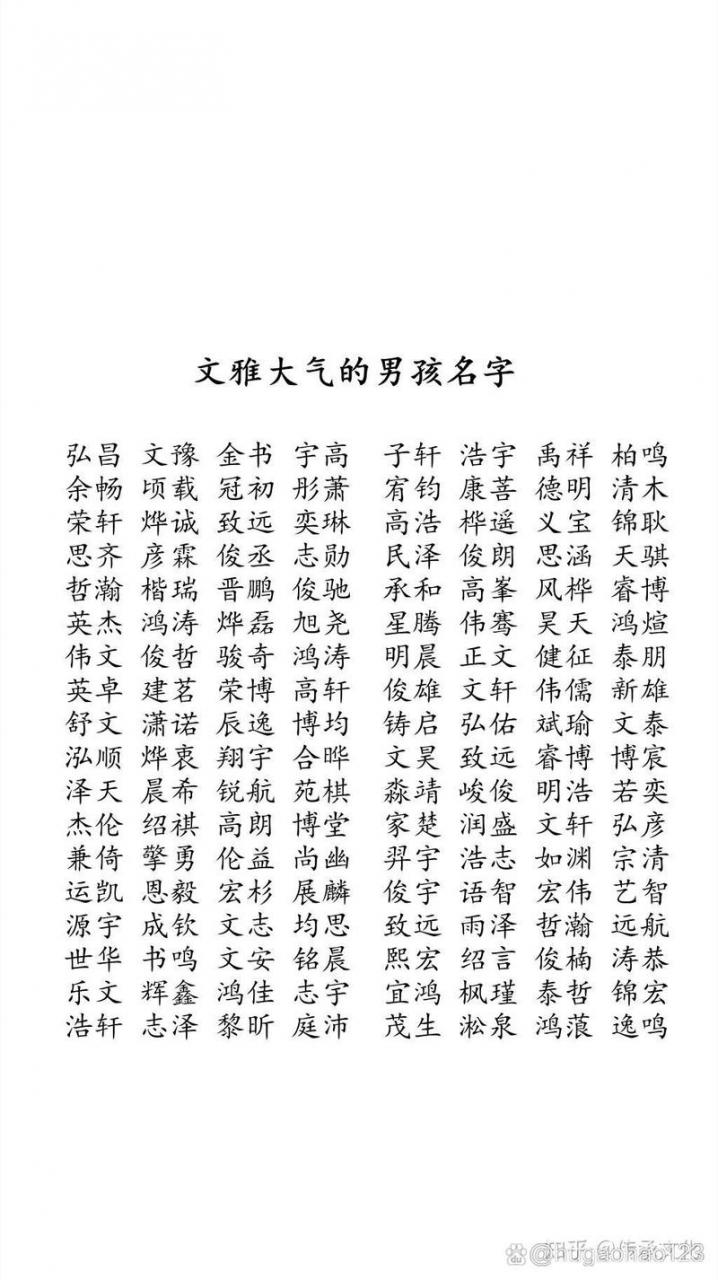 文雅大气的男孩名字
弘昌 文豫 金书 宇高 子轩 浩宇 禹祥 柏鸣
余畅 顷载 冠初 彤萧 宥钧 康善 德明 清木
荣轩 烨诚 致远 奕琳 高浩 桦遥 义宝 锦耿
思齐 彦霖 俊丞 志勋 民泽 俊朗 思涵 天骐
哲瀚 楷瑞 晋鹏 俊驰 承和 高峯 风桦 睿博
英杰 鸿涛 烨磊 旭尧 星腾 伟骞 昊天 鸿煊
伟文 俊哲 骏奇 鸿涛 明晨 正文 健征 泰朋
英卓 建茗 荣博 高轩 俊雄 文轩 伟儒 新雄
舒文 潇诺 辰逸 博均 铸启 弘佑 斌瑜 文泰
泓顺 烨衷 翔宇 合晔 文昊 致远 睿博 博宸
泽天 晨希 锐航 苑棋 淼靖 峻俊 明浩 若奕
杰伦 绍祺 高朗 博堂 家楚 润盛 文轩 弘彦
兼倚 擎勇 伦益 尚幽 羿宇 浩志 如渊 宗清
运凯 恩毅 宏杉 展麟 俊宇 语智 宏伟 艺智
源宇 成钦 文志 均思 致远 雨泽 哲瀚 远航
世华 书鸣 文安 铭晨 熙宏 绍言 俊楠 涛恭
乐文 辉鑫 鸿佳 志宇 宜鸿 枫瑾 泰哲 锦宏
浩轩 志泽 黎昕 庭沛 茂生 淞泉 鸿蒗 逸鸣
知乎 @传承文化